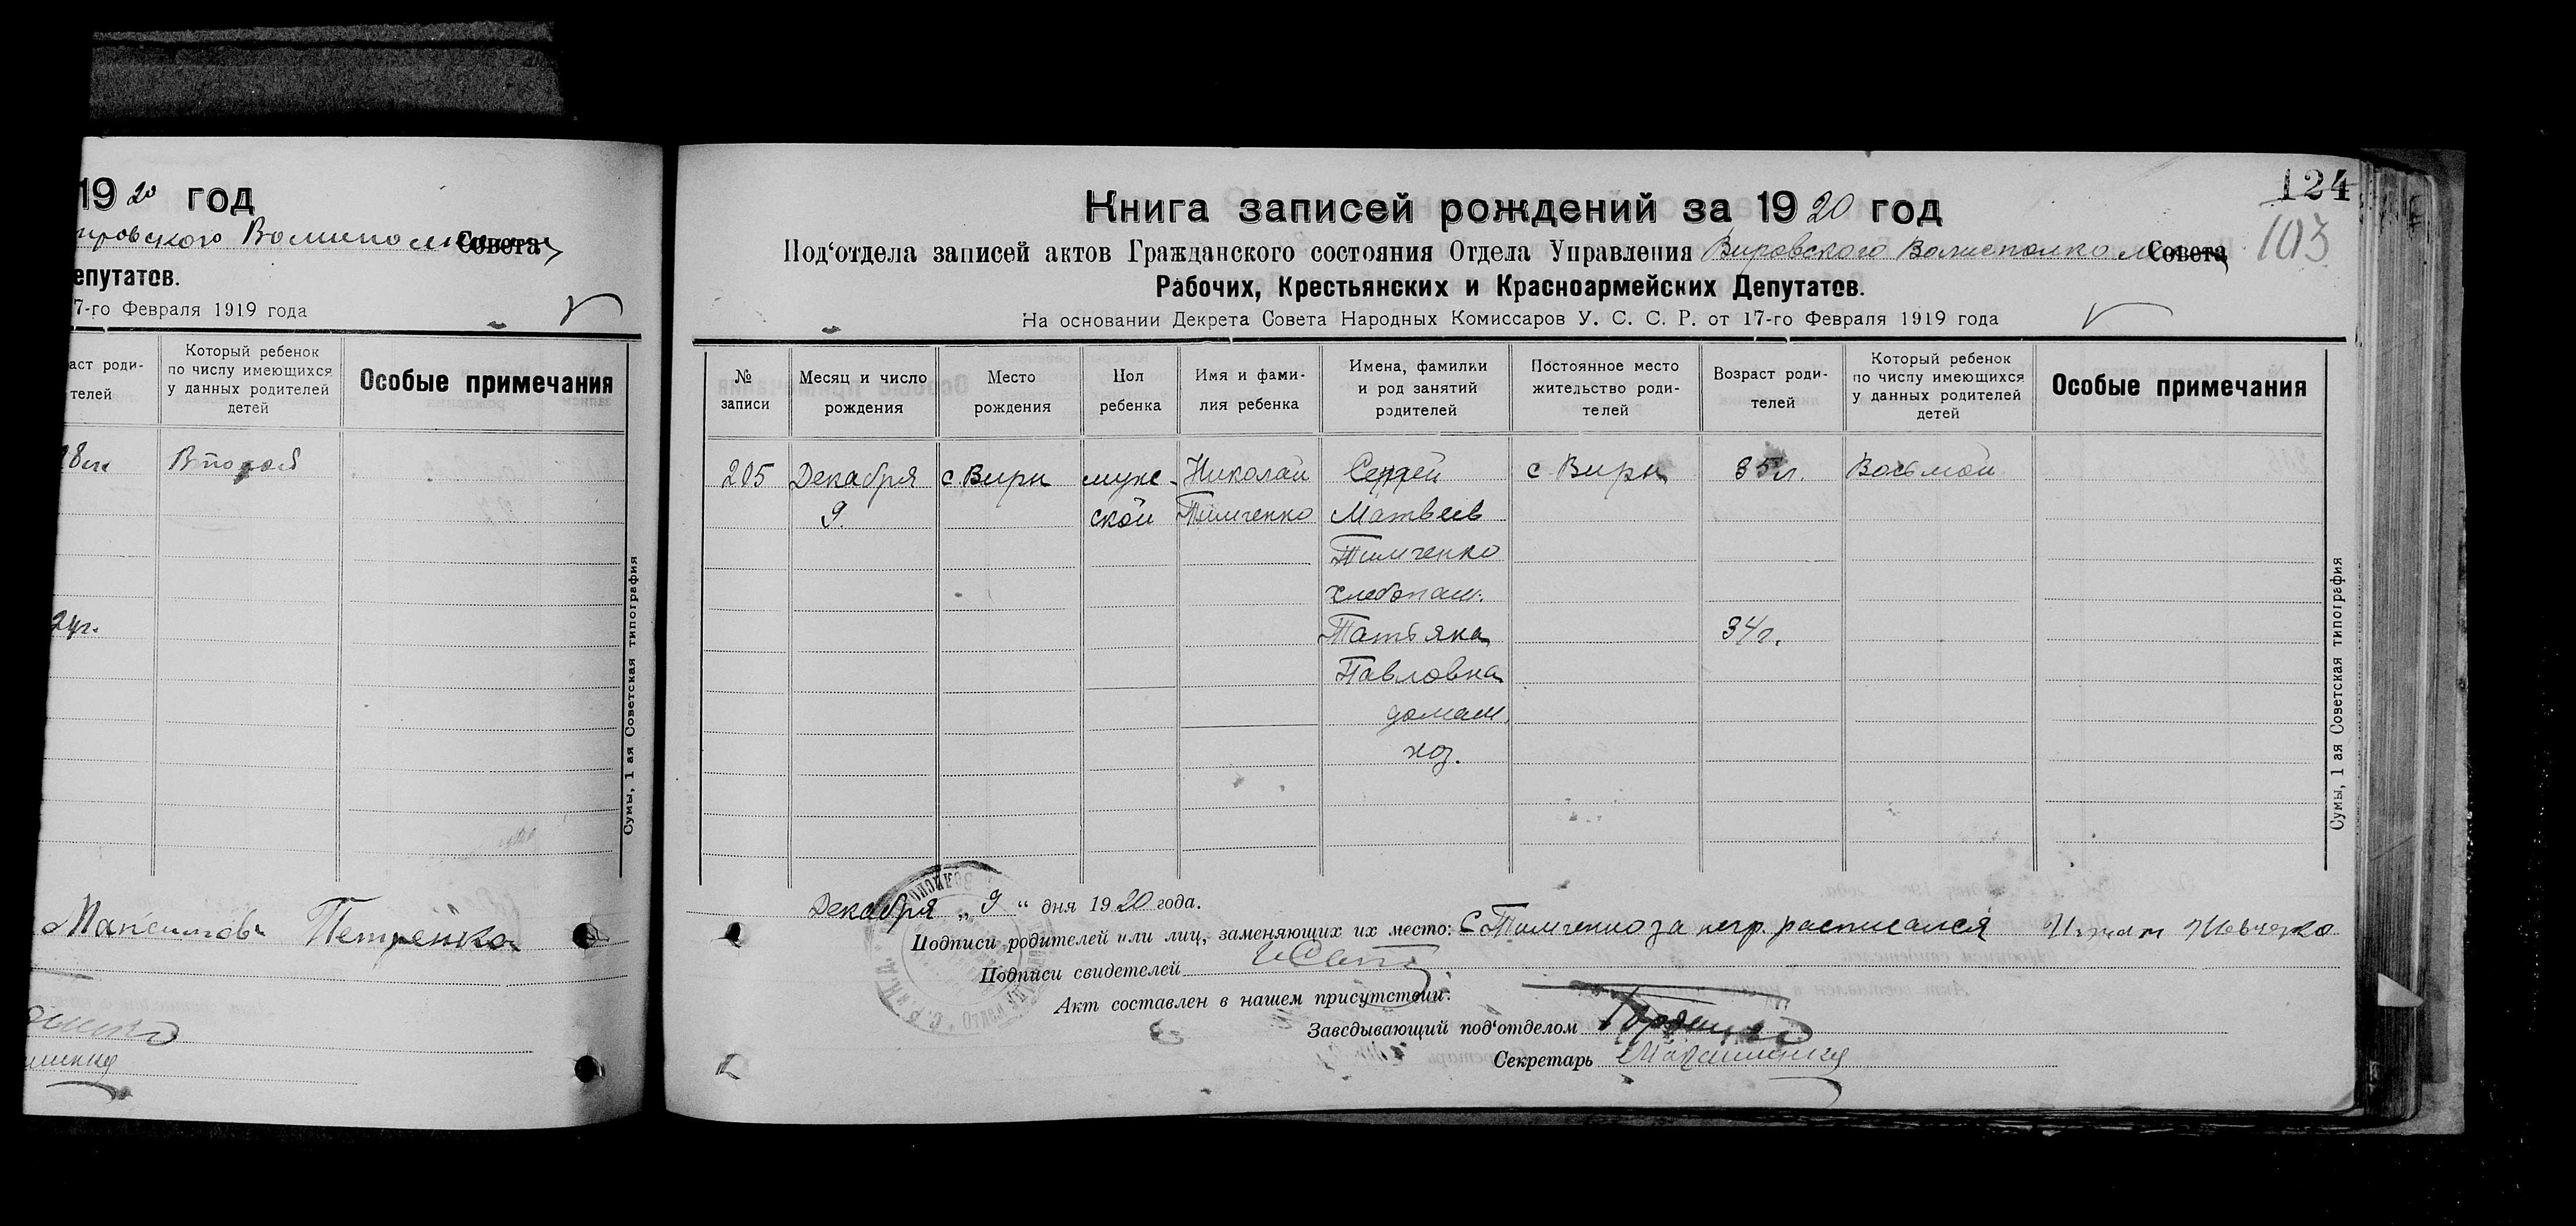 1920 год
ировского Волисполкома Совета
епутатов.
7-го Февраля 1919 года
аст роди-
телей
Который ребенок
по числу имеющихся
у данных родителей
детей
Особые примечания
28л
Второй
24г.
Сумы, 1 ая Советская типография
Петренко
124
103
Книга записей рождений за 1920 год
Под‘отдела записей актов Гражданского состояния Отдела Управления Вировского Волисполкома Совета
Рабочих, Крестьянских и Красноармейских Депутатов.
На основании Декрета Совета Народных Комиссаров У. С. С. Р. от 17-го Февраля 1919 года
№
записи
Месяц и число
рождения
Место
рождения
Пол
ребенка
Имя и фами-
лия ребенка
Имена, фамилии
и род занятий
родителей
Постоянное место
жительство роди-
телей
Возраст роди-
телей
Который ребенок
по числу имеющихся
у данных родителей
детей
Особые примечания
205
Декабря
9.
с. Виры
мужс-
кой
Николай
Тимченко
Сергей
Матвеев
Тимченко
хлебопаш.
Татьяна
Павловна
домаш.
хоз.
с Виры
35л.
34г.
Восьмой
Сумы, 1 ая Советская типография
Декабря „ 9 “ дня 1920 года.
Подписи родителей или лиц, заменяющих их место: С Тимченко за негр. расписался Шевченко
Подписи свидетелей
Акт составлен в нашем присутствии:
Заведывающий под‘отделом
Секретарь